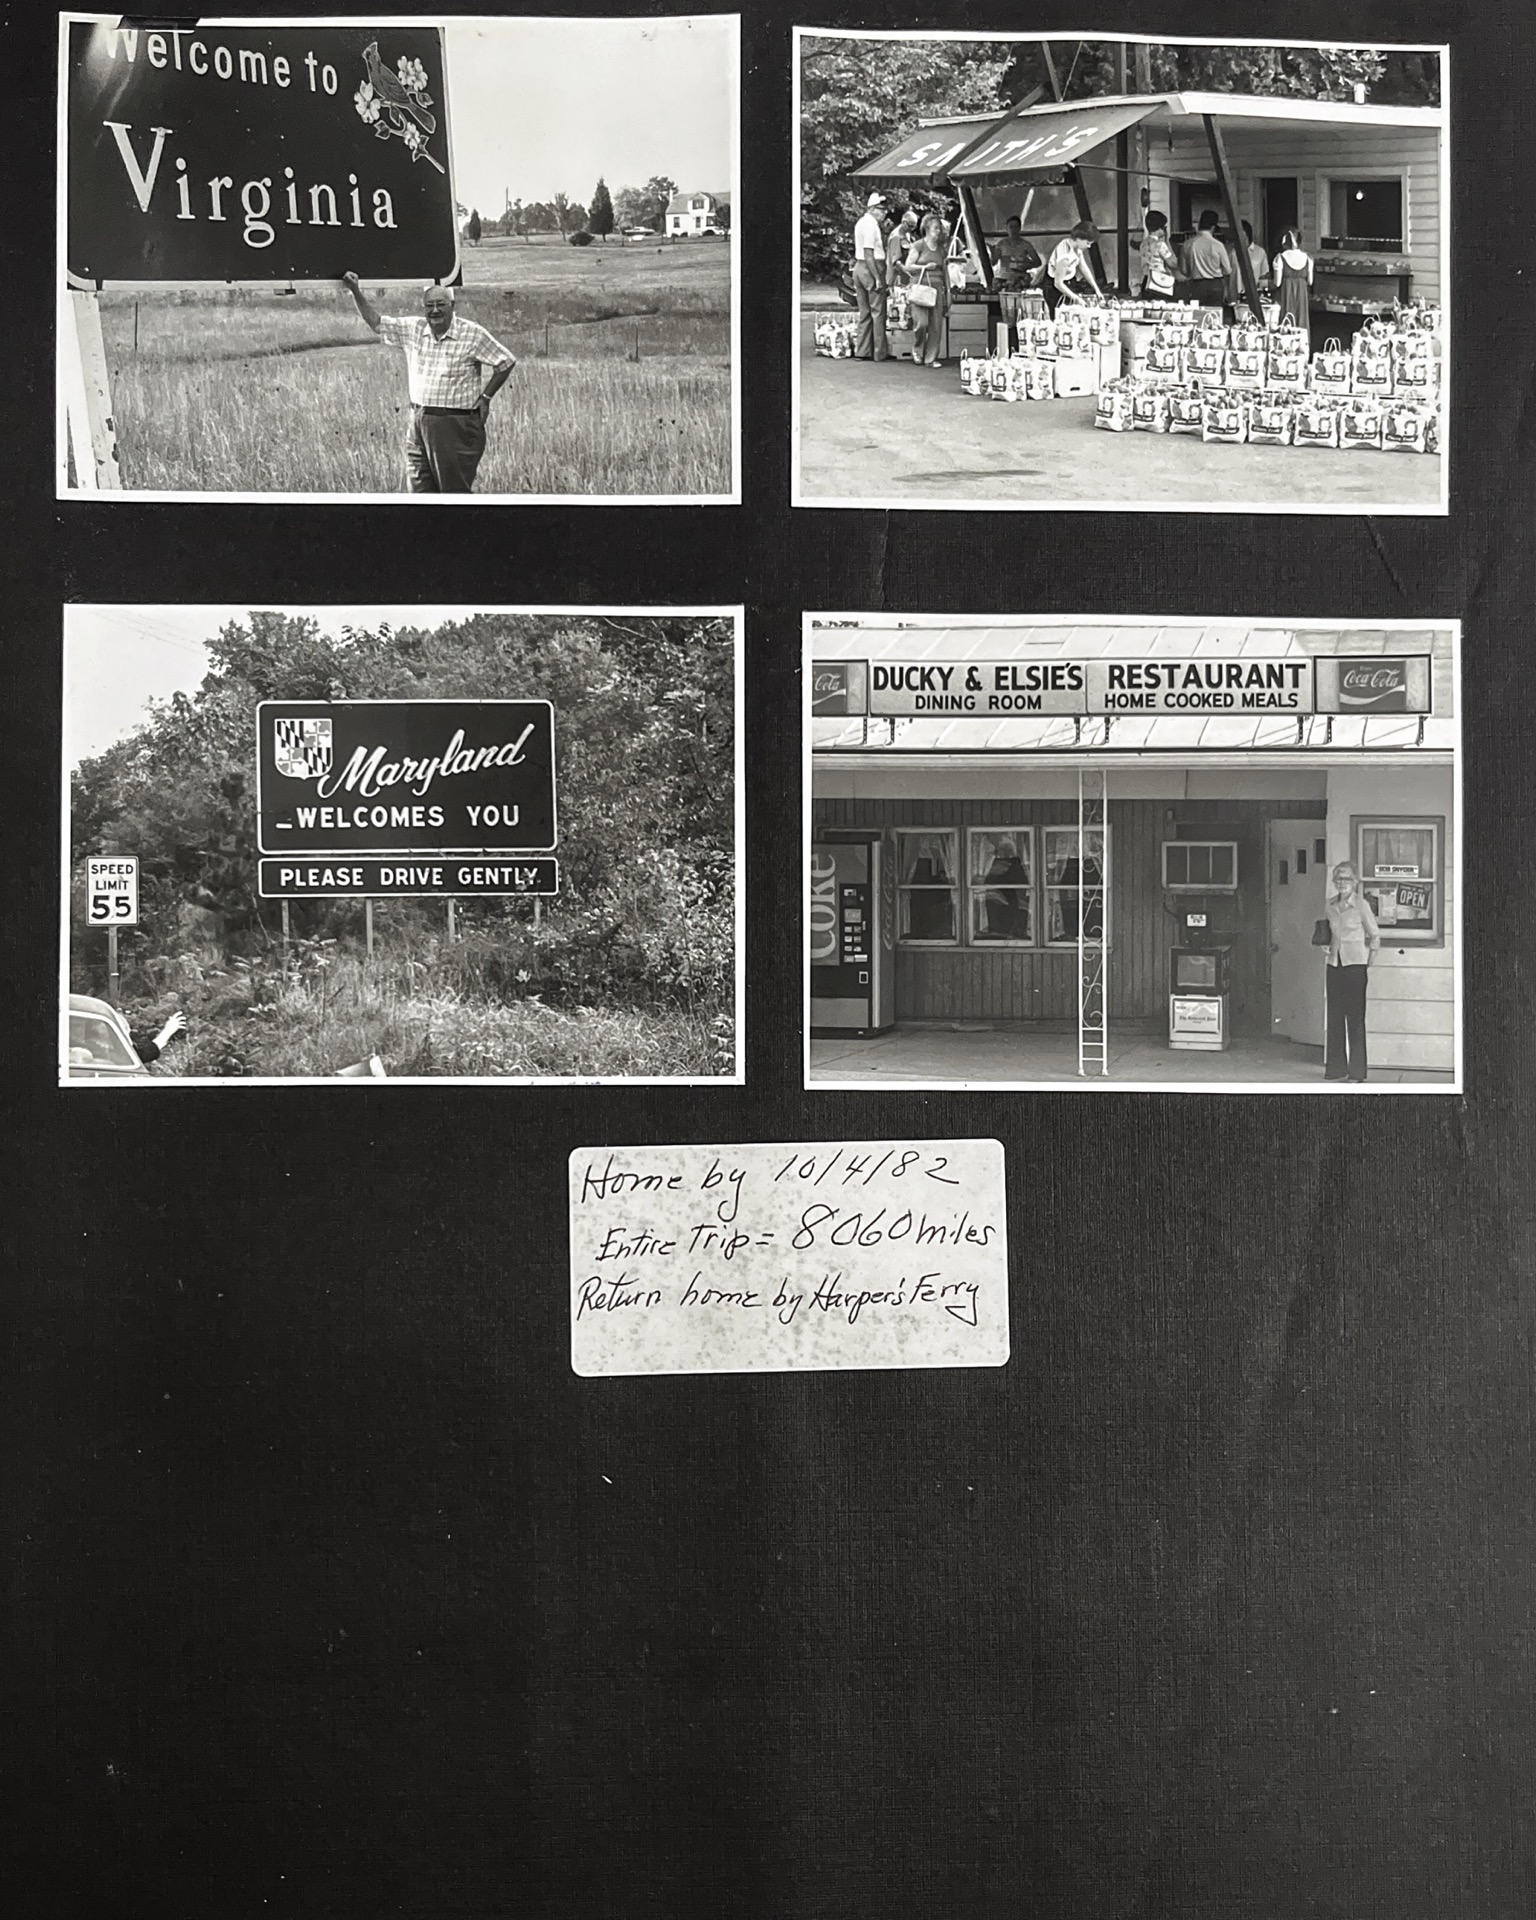 Welcome to
Virginia
SMITH'S
Maryland
WELCOMES YOU
PLEASE DRIVE GENTLY
SPEED
LIMIT
55
Coca-Cola
DUCKY & ELSIE'S RESTAURANT
DINING ROOM HOME COOKED MEALS
Coca-Cola
Coke
OPEN
Home by 10/4/82
Entire Trip = 8060 miles
Return home by Harper's Ferry